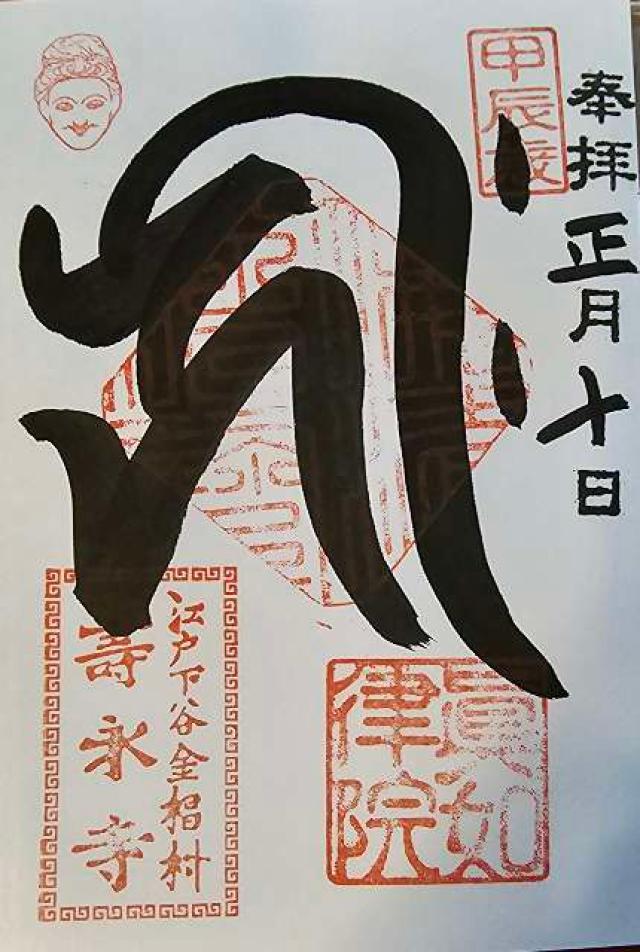 奉拝 正月十日
甲辰歳
𑖮𑖿𑖨𑖱𑖾
眞如律院
江戸下谷金杉村
壽永寺